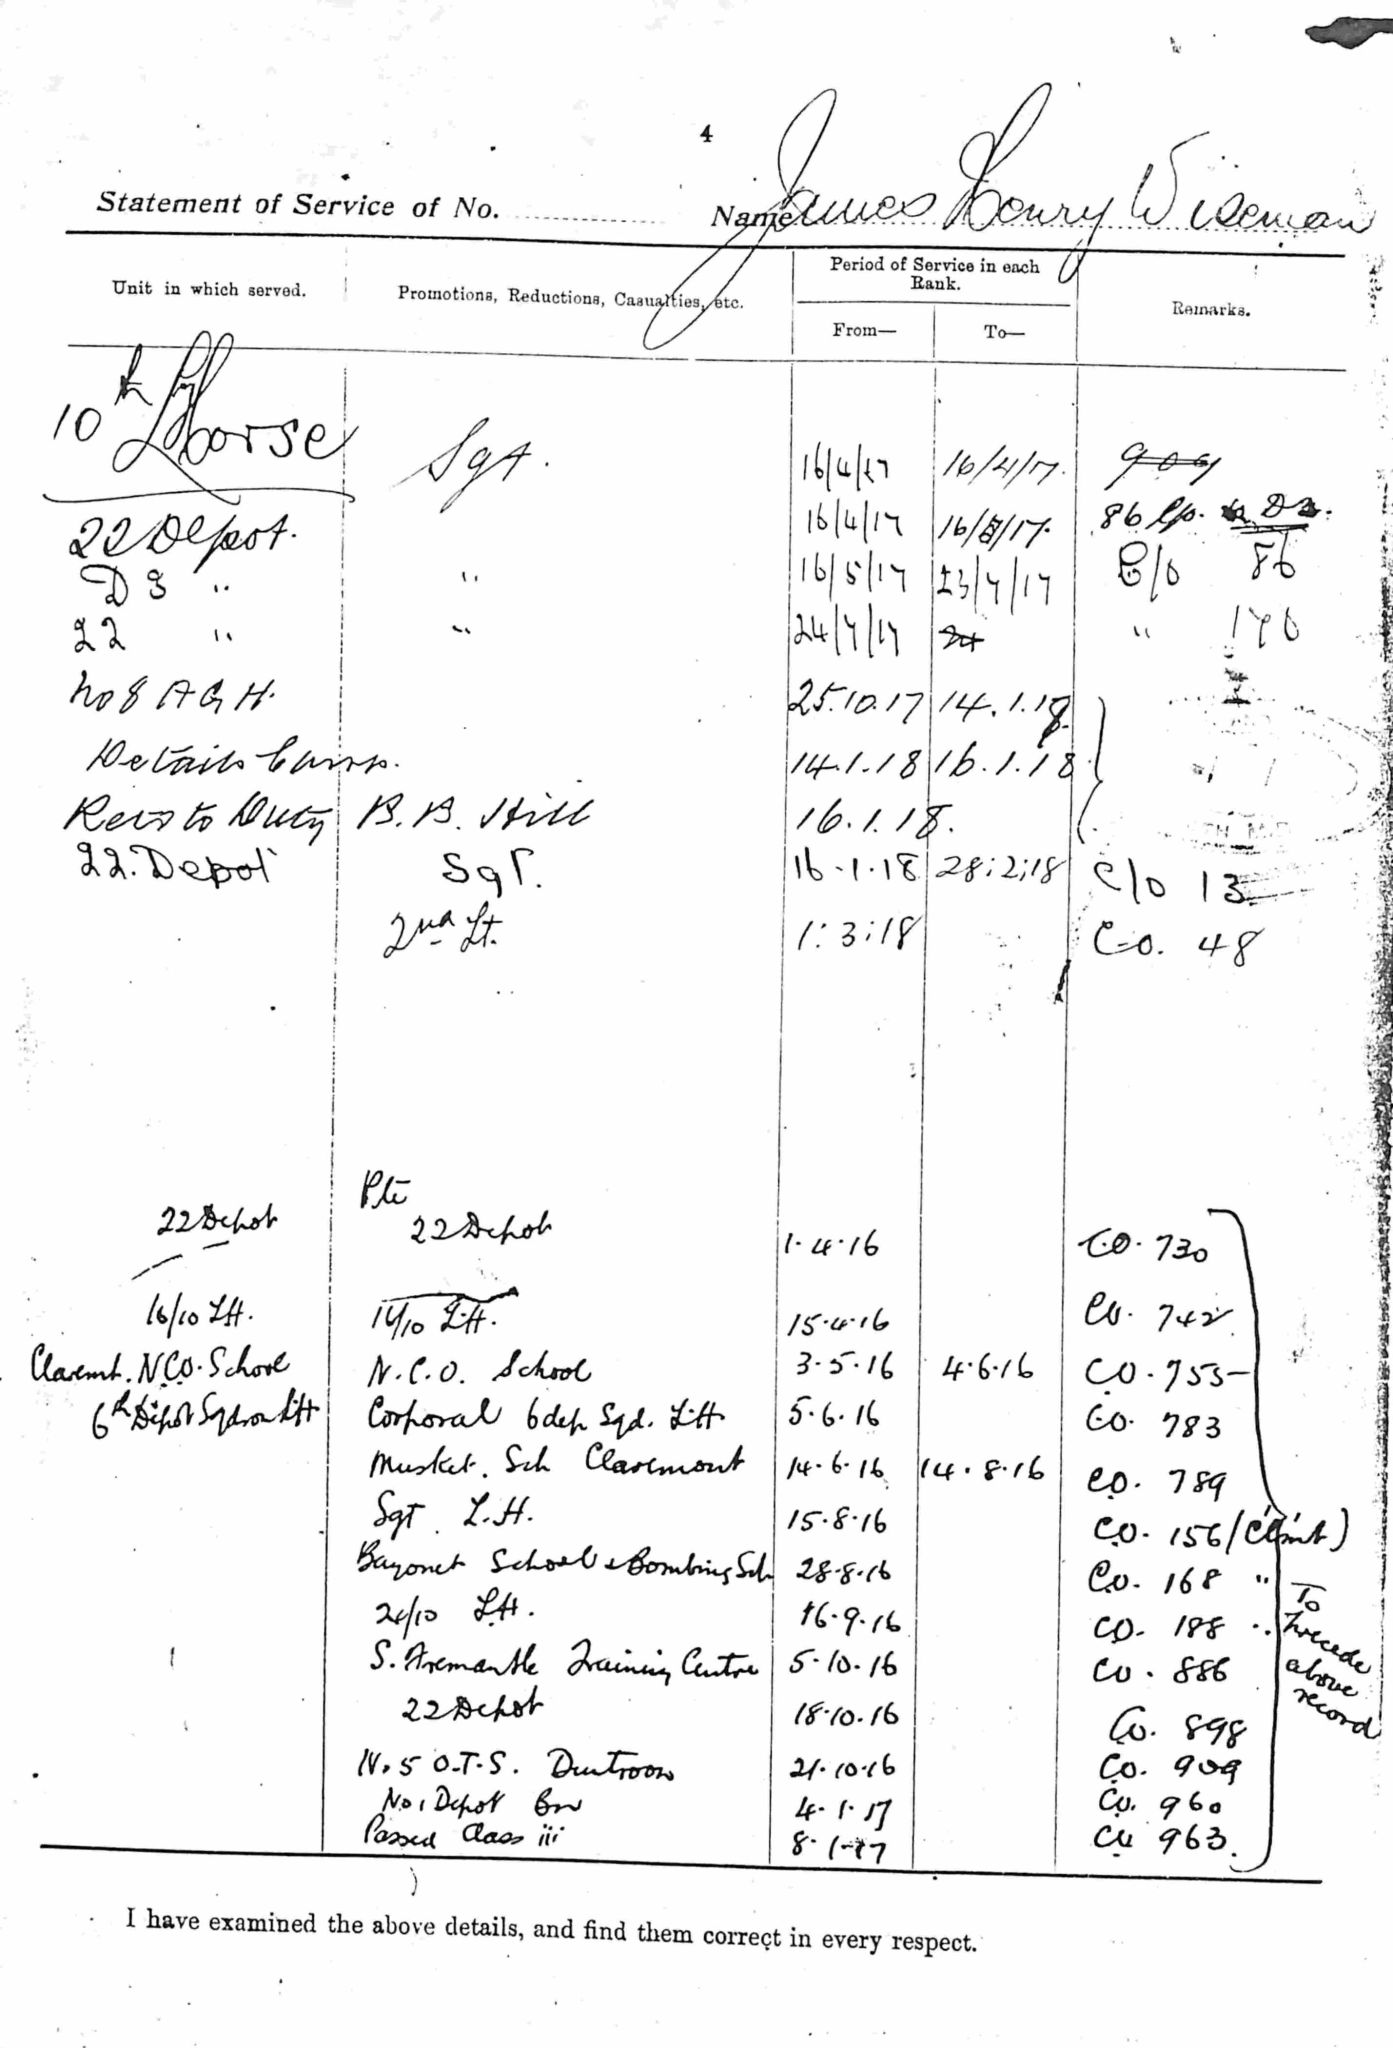 4
Statement of Service of No. Name James Henry Wiseman
Unit in which served. Promotions, Reductions, Casualties, etc. Period of Service in each Rank. Remarks.
From— To—
10th L Horse Sgt. 16/4/17 16/4/17. 909
22 Depot. 16/4/17 16/5/17. 86
D3 " " 16/5/17 23/7/17 C/o 86
22 " " 24/7/17 24 " 170
No 8 A G H. 25.10.17 14.1.18
Details Camp. 14.1.18 16.1.18
Retns to Duty B.B. Hill 16.1.18.
22. Depot Sgt. 16.1.18 28:2:18 C/o 13
2nd Lt. 1:3:18 C.O. 48
Pte
22 Depot 22 Depot 1.4.16 C.O. 730
16/10 LH. 16/10 L.H. 15.4.16 CO. 742
Claremt. N.C.O. School N.C.O. School 3.5.16 4.6.16 C.O. 755
6th Depot Sqdron LH Corporal 6 dep Sqd. L.H. 5.6.16 CO. 783
Musket. Sch Claremont 14.6.16 14.8.16 C.O. 789
Sgt L.H. 15.8.16 C.O. 156 (Clmt)
Bayonet School & Bombing Sch 28.8.16 C.O. 168 "
20/10 L.H. 16.9.16 CO. 188 "
S. Fremantle Training Centre 5.10.16 CO. 886
22 Depot 18.10.16 Co. 898
N. 5 O.T.S. Duntroon 21.10.16 CO. 909
No 1 Depot Bn 4.1.17 CO. 960
Passed Class iii 8.1.17 CO 963.
To
Precede
above
record
I have examined the above details, and find them correct in every respect.